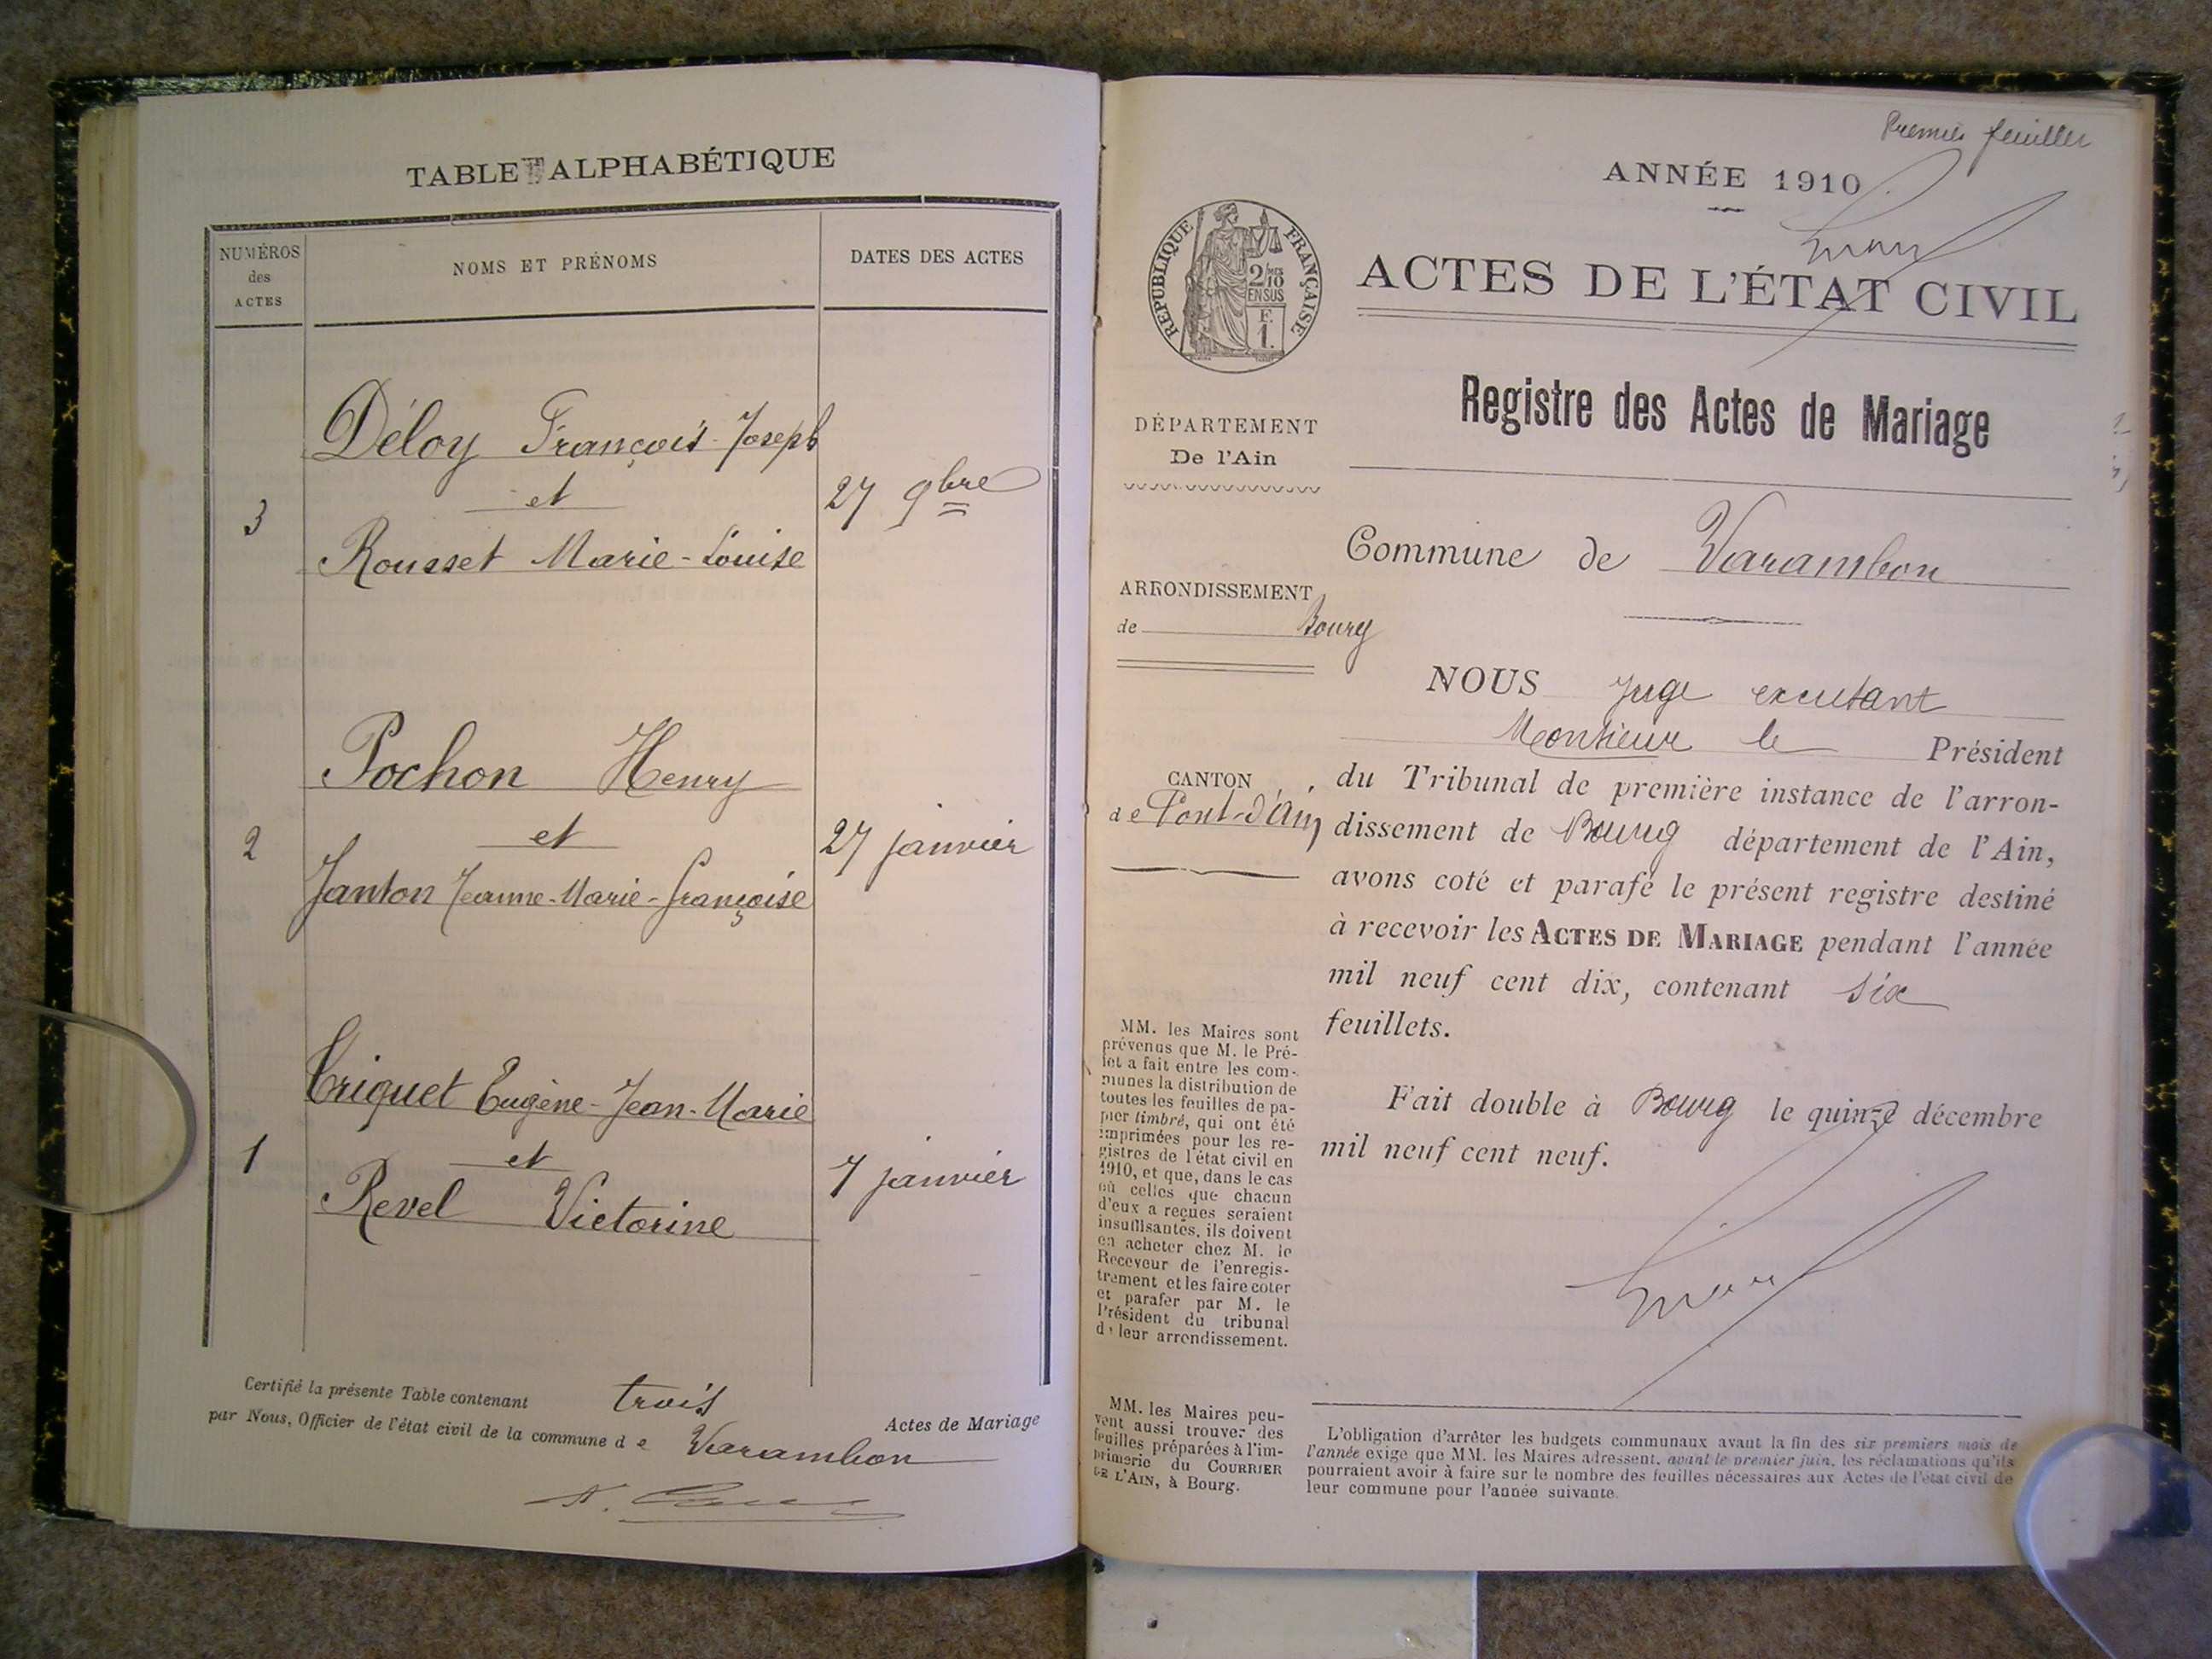 TABLE ALPHABÉTIQUE
NUMÉROS
des
ACTES
NOMS ET PRÉNOMS
DATES DES ACTES
Déloy François-Joseph
et
3
27 9bre
Rousset Marie-Louise
Pochon Henry
et
2
27 janvier
Janton Jeanne-Marie-Françoise
Triquet Eugène-Jean-Marie
et
1
7 janvier
Revel Victorine
Certifié la présente Table contenant trois Actes de Mariage
par Nous, Officier de l'état civil de la commune de Varambon
Premier feuillet
ANNÉE 1910
RÉPUBLIQUE FRANÇAISE
2/10
EN SUS
F.
1.
ACTES DE L'ÉTAT CIVIL
Registre des Actes de Mariage
DÉPARTEMENT
De l'Ain
Commune de Varambon
ARRONDISSEMENT
de Bourg
CANTON
de Pont-d'Ain
NOUS Juge
Monsieur le Président
du Tribunal de première instance de l'arron-
dissement de Bourg département de l'Ain,
avons coté et parafé le présent registre destiné
à recevoir les ACTES DE MARIAGE pendant l'année
mil neuf cent dix, contenant six
feuillets.
Fait double à Bourg le quinze décembre
mil neuf cent neuf.
MM. les Maires sont
prévenus que M. le Pré-
fet a fait entre les com-
munes la distribution de
toutes les feuilles de pa-
pier timbré, qui ont été
imprimées pour les re-
gistres de l'état civil en
1910, et que, dans le cas
où celles que chacun
d'eux a reçues seraient
insuffisantes, ils doivent
en acheter chez M. le
Receveur de l'enregis-
trement et les faire coter
et parafer par M. le
Président du tribunal
de leur arrondissement.
MM. les Maires peu-
vent aussi trouver des
feuilles préparées à l'im-
primerie du COURRIER
DE L'AIN, à Bourg.
L'obligation d'arrêter les budgets communaux avant la fin des six premiers mois de
l'année exige que MM. les Maires adressent, avant le premier juin, les réclamations qu'ils
pourraient avoir à faire sur le nombre des feuilles nécessaires aux Actes de l'état civil de
leur commune pour l'année suivante.